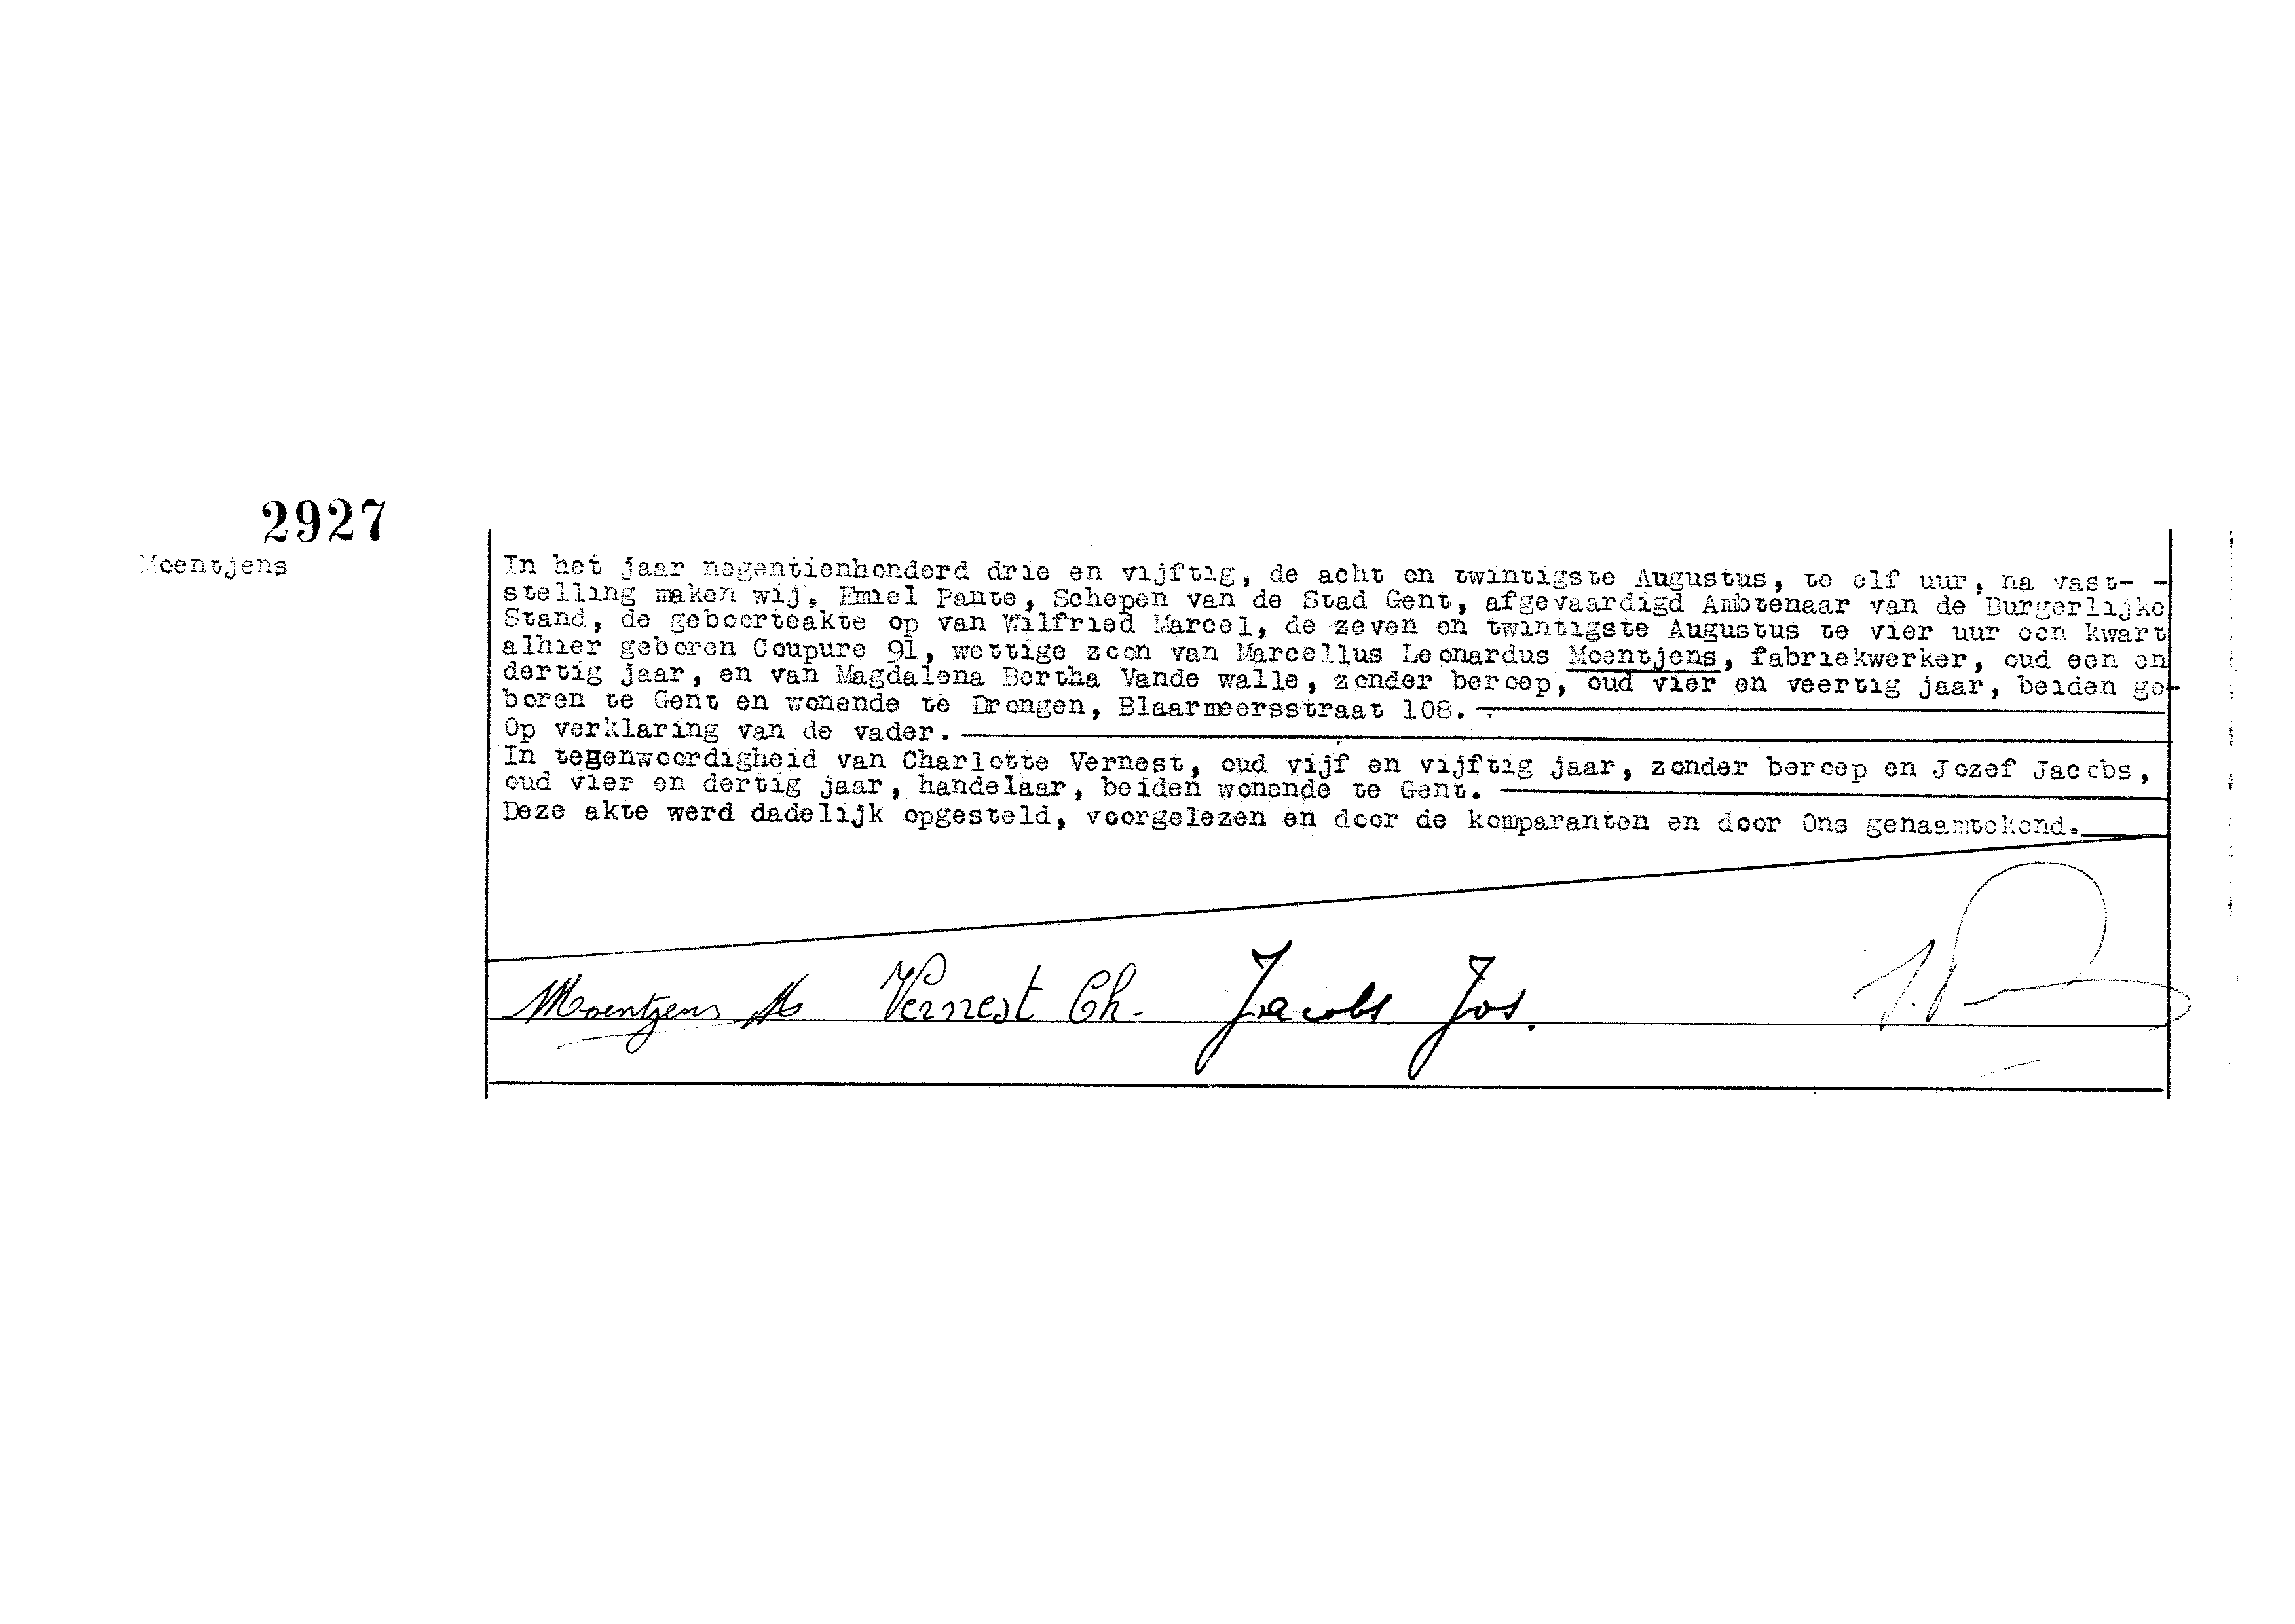 2927
Moentjens
In het jaar negentienhonderd drie en vijftig, de acht en twintigste Augustus, te elf uur, na vast- -
stelling maken wij, Emiel Pante, Schepen van de Stad Gent, afgevaardigd Ambtenaar van de Burgerlijke
Stand, de geboorteakte op van Wilfried Marcel, de zeven en twintigste Augustus te vier uur een kwart
alhier geboren Coupure 91, wettige zoon van Marcellus Leonardus Moentjens, fabriekwerker, oud een en
dertig jaar, en van Magdalena Bertha Vande walle, zonder beroep, oud vier en veertig jaar, beiden ge-
boren te Gent en wonende te Drongen, Blaarmeersstraat 108.
Op verklaring van de vader.
In tegenwoordigheid van Charlotte Vernest, oud vijf en vijftig jaar, zonder beroep en Jozef Jacobs,
oud vier en dertig jaar, handelaar, beiden wonende te Gent.
Deze akte werd dadelijk opgesteld, voorgelezen en door de komparanten en door Ons genaamtekend.
Moentjens M Vernest Ch. Jacobs Jos.